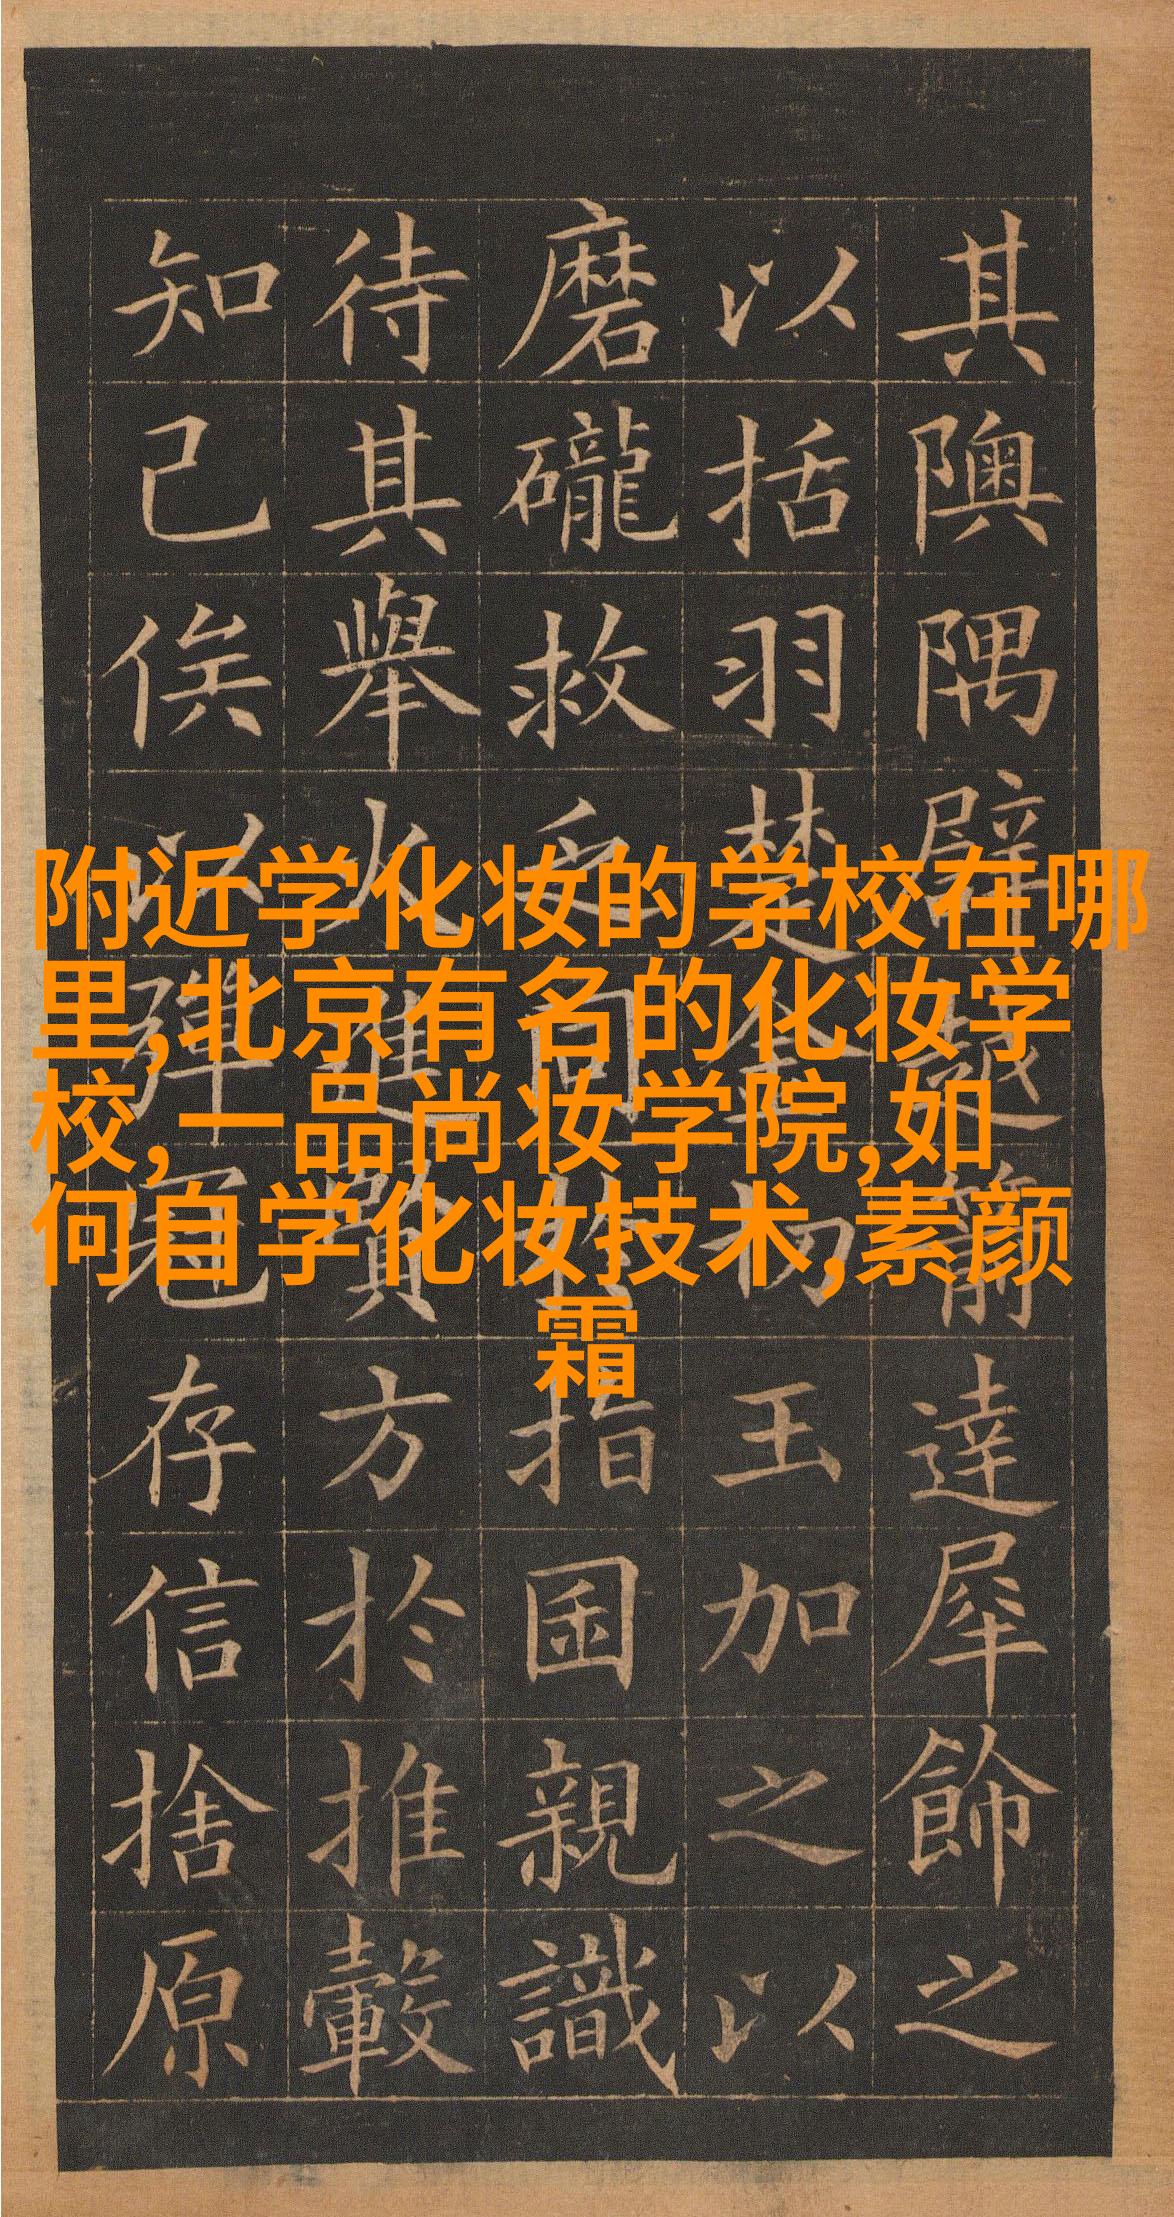 附近学化妆的学校在哪
里,北京有名的化妆学
校,一品尚妆学院,如
何自学化妆技术,素颜
霜
其隩隅辟越達犀飾之
以括羽楚金切王加之以
磨礲救乏同指囷親識
待其舉火進賢方於推轂
知己俟以彈冠存信捨原